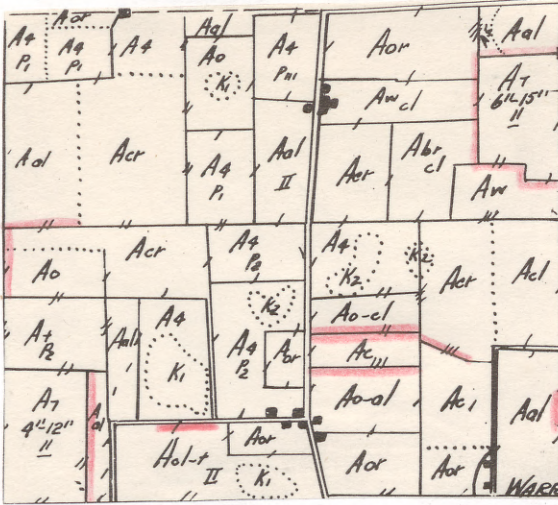 Aor
A4
P1
A4
P1
A4
Aal
Ao
K1
A4
Aor
Aal
A7
6"-15"
II
Aw
cl
Aal
Acr
A4
P1
Aal
II
Aer
Abr
cl
Aw
Acr
A4
P2
A4
K2
K2
Acr
Acl
Ao
K2
Ao-cl
A+
P2
Aal
A4
K1
A4
P2
Aor
Ac
A7
4"-12"
II
Aal
Ao-al
Ac1
Aal
Aol-+
II
Aor
K1
Aor
Aor
WARR